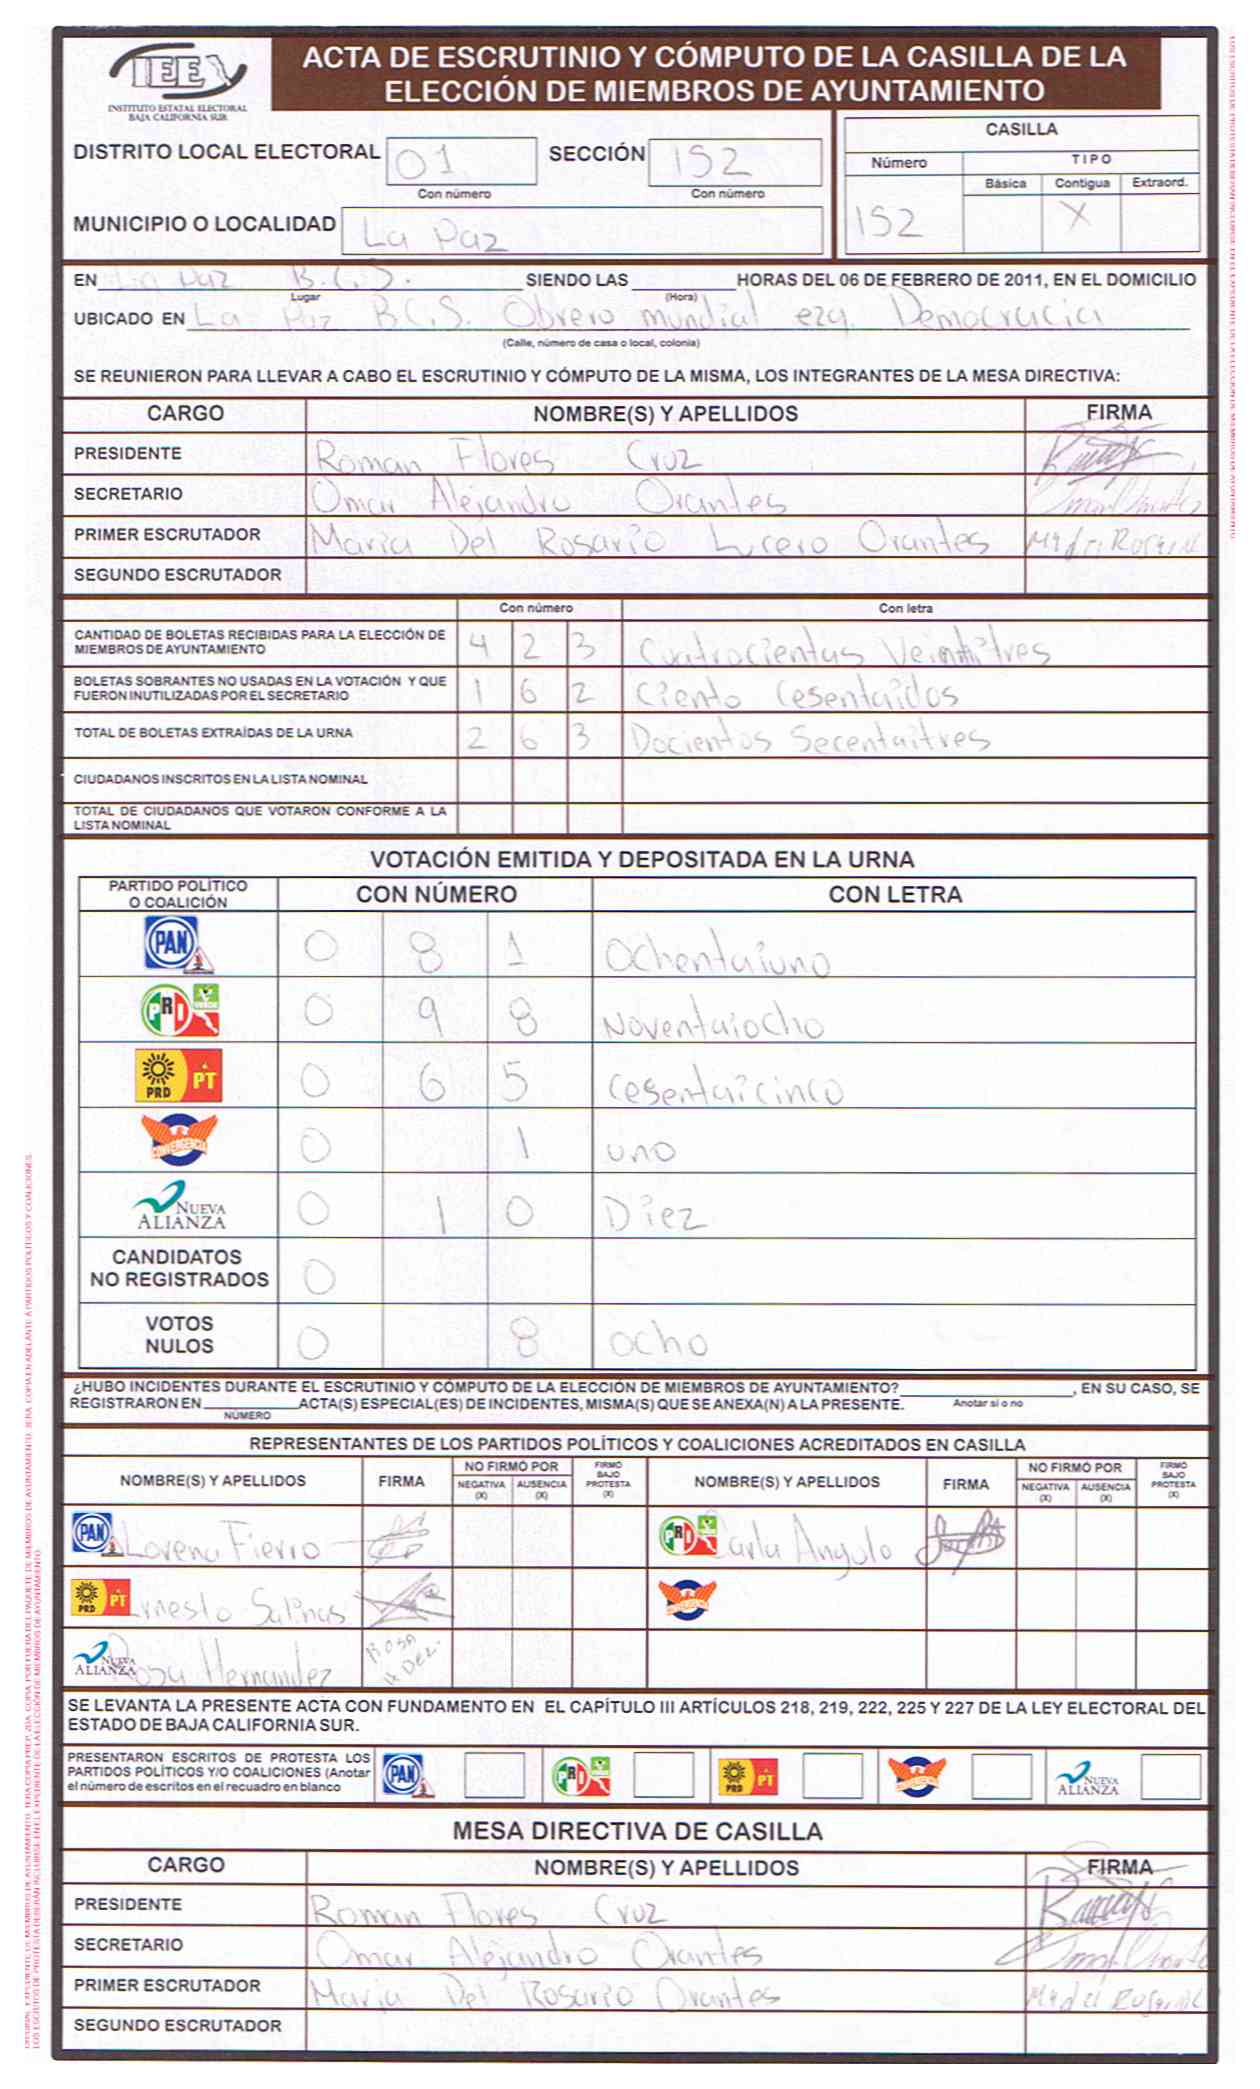 IEE
INSTITUTO ESTATAL ELECTORAL
BAJA CALIFORNIA SUR
ACTA DE ESCRUTINIO Y CÓMPUTO DE LA CASILLA DE LA
ELECCIÓN DE MIEMBROS DE AYUNTAMIENTO
DISTRITO LOCAL ELECTORAL 01 SECCIÓN 152
Con número Con número
MUNICIPIO O LOCALIDAD La Paz
CASILLA
Número TIPO
Básica Contigua Extraord.
152 X
EN La Paz B.C.S. SIENDO LAS HORAS DEL 06 DE FEBRERO DE 2011, EN EL DOMICILIO
Lugar (Hora)
UBICADO EN La Paz B.C.S. Obrero mundial ezq. Democracia
(Calle, número de casa o local, colonia)
SE REUNIERON PARA LLEVAR A CABO EL ESCRUTINIO Y CÓMPUTO DE LA MISMA, LOS INTEGRANTES DE LA MESA DIRECTIVA:
CARGO NOMBRE(S) Y APELLIDOS FIRMA
PRESIDENTE Roman Flores Cruz
SECRETARIO Omar Alejandro Orantes
PRIMER ESCRUTADOR Maria Del Rosario Lucero Orantes
SEGUNDO ESCRUTADOR
Con número Con letra
CANTIDAD DE BOLETAS RECIBIDAS PARA LA ELECCIÓN DE
MIEMBROS DE AYUNTAMIENTO 4 2 3 Cuatrocientas
BOLETAS SOBRANTES NO USADAS EN LA VOTACIÓN Y QUE
FUERON INUTILIZADAS POR EL SECRETARIO 1 6 2 Ciento Cesentaidos
TOTAL DE BOLETAS EXTRAÍDAS DE LA URNA 2 6 3 Docientos Secentaitres
CIUDADANOS INSCRITOS EN LA LISTA NOMINAL
TOTAL DE CIUDADANOS QUE VOTARON CONFORME A LA
LISTA NOMINAL
VOTACIÓN EMITIDA Y DEPOSITADA EN LA URNA
PARTIDO POLÍTICO
O COALICIÓN CON NÚMERO CON LETRA
PAN 0 8 1 Ochentaiuno
PRI VERDE 0 9 8 Noventaiocho
PRD PT 0 6 5 Cesentaicinco
CONVERGENCIA 0 1 uno
NUEVA ALIANZA 0 1 0 Diez
CANDIDATOS
NO REGISTRADOS 0
VOTOS
NULOS 0 8 ocho
¿HUBO INCIDENTES DURANTE EL ESCRUTINIO Y CÓMPUTO DE LA ELECCIÓN DE MIEMBROS DE AYUNTAMIENTO? , EN SU CASO, SE
REGISTRARON EN ACTA(S) ESPECIAL(ES) DE INCIDENTES, MISMA(S) QUE SE ANEXA(N) A LA PRESENTE. Anotar si o no
NÚMERO
REPRESENTANTES DE LOS PARTIDOS POLÍTICOS Y COALICIONES ACREDITADOS EN CASILLA
NOMBRE(S) Y APELLIDOS FIRMA NO FIRMÓ POR NEGATIVA (X) AUSENCIA (X) FIRMÓ BAJO PROTESTA (X) NOMBRE(S) Y APELLIDOS FIRMA NO FIRMÓ POR NEGATIVA (X) AUSENCIA (X) FIRMÓ BAJO PROTESTA (X)
PAN Lorena Fierro PRI Carla Angulo
PRD PT Ernesto Salinas CONVERGENCIA
NUEVA ALIANZA Rosa Hernandez
SE LEVANTA LA PRESENTE ACTA CON FUNDAMENTO EN EL CAPÍTULO III ARTÍCULOS 218, 219, 222, 225 Y 227 DE LA LEY ELECTORAL DEL
ESTADO DE BAJA CALIFORNIA SUR.
PRESENTARON ESCRITOS DE PROTESTA LOS
PARTIDOS POLÍTICOS Y/O COALICIONES (Anotar
el número de escritos en el recuadro en blanco
PAN PRI PRD PT CONVERGENCIA NUEVA ALIANZA
MESA DIRECTIVA DE CASILLA
CARGO NOMBRE(S) Y APELLIDOS FIRMA
PRESIDENTE Roman Flores Cruz
SECRETARIO Omar Alejandro Orantes
PRIMER ESCRUTADOR Maria Del Rosario Orantes
SEGUNDO ESCRUTADOR